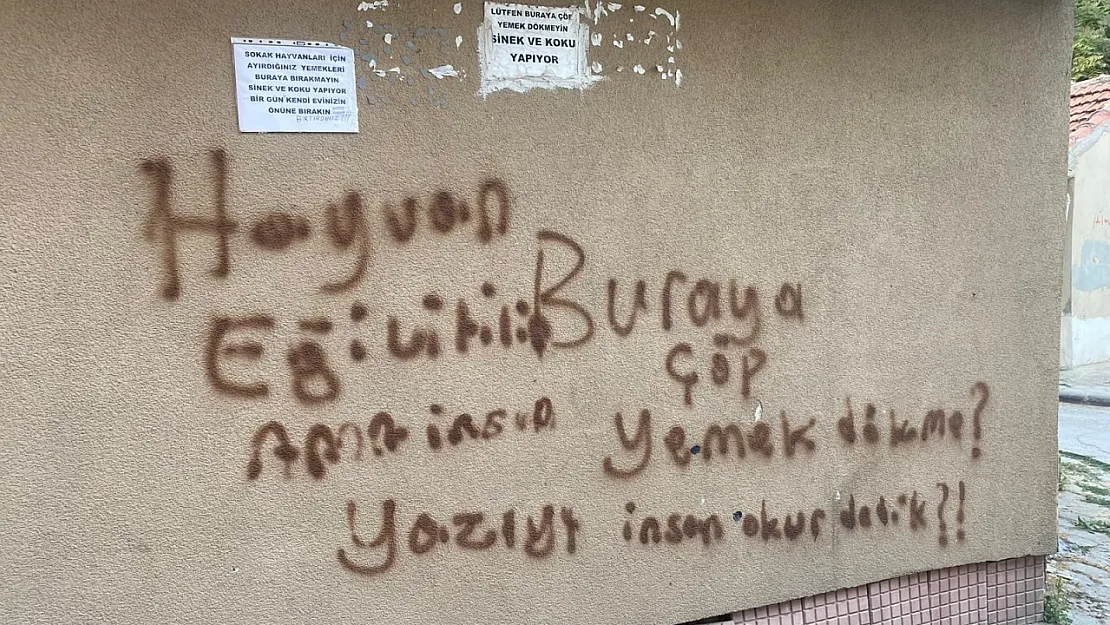 LÜTFEN BURAYA ÇÖP
YEMEK DÖKMEYİN
SİNEK VE KOKU
YAPIYOR
SOKAK HAYVANLARI İÇİN
AYIRDIĞINIZ YEMEKLERİ
BURAYA BIRAKMAYIN
SİNEK VE KOKU YAPIYOR
BİR GÜN KENDİ EVİNİZİN
ÖNÜNE BIRAKIN
Hayvan
Eğilitilir Buraya
Çöp
AMA insan yemek dökme?
yazıyı insan okur dedik?!